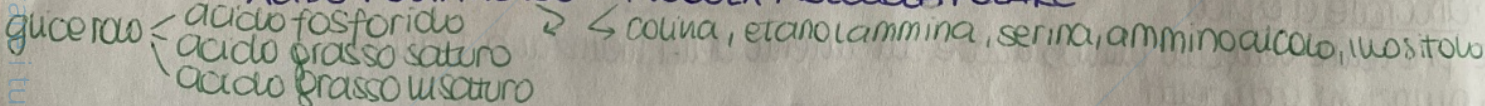 glicerolo < acido fosforico > < colina, etanolammina, serina, amminoalcolo, inositolo
acido grasso saturo
acido grasso insaturo